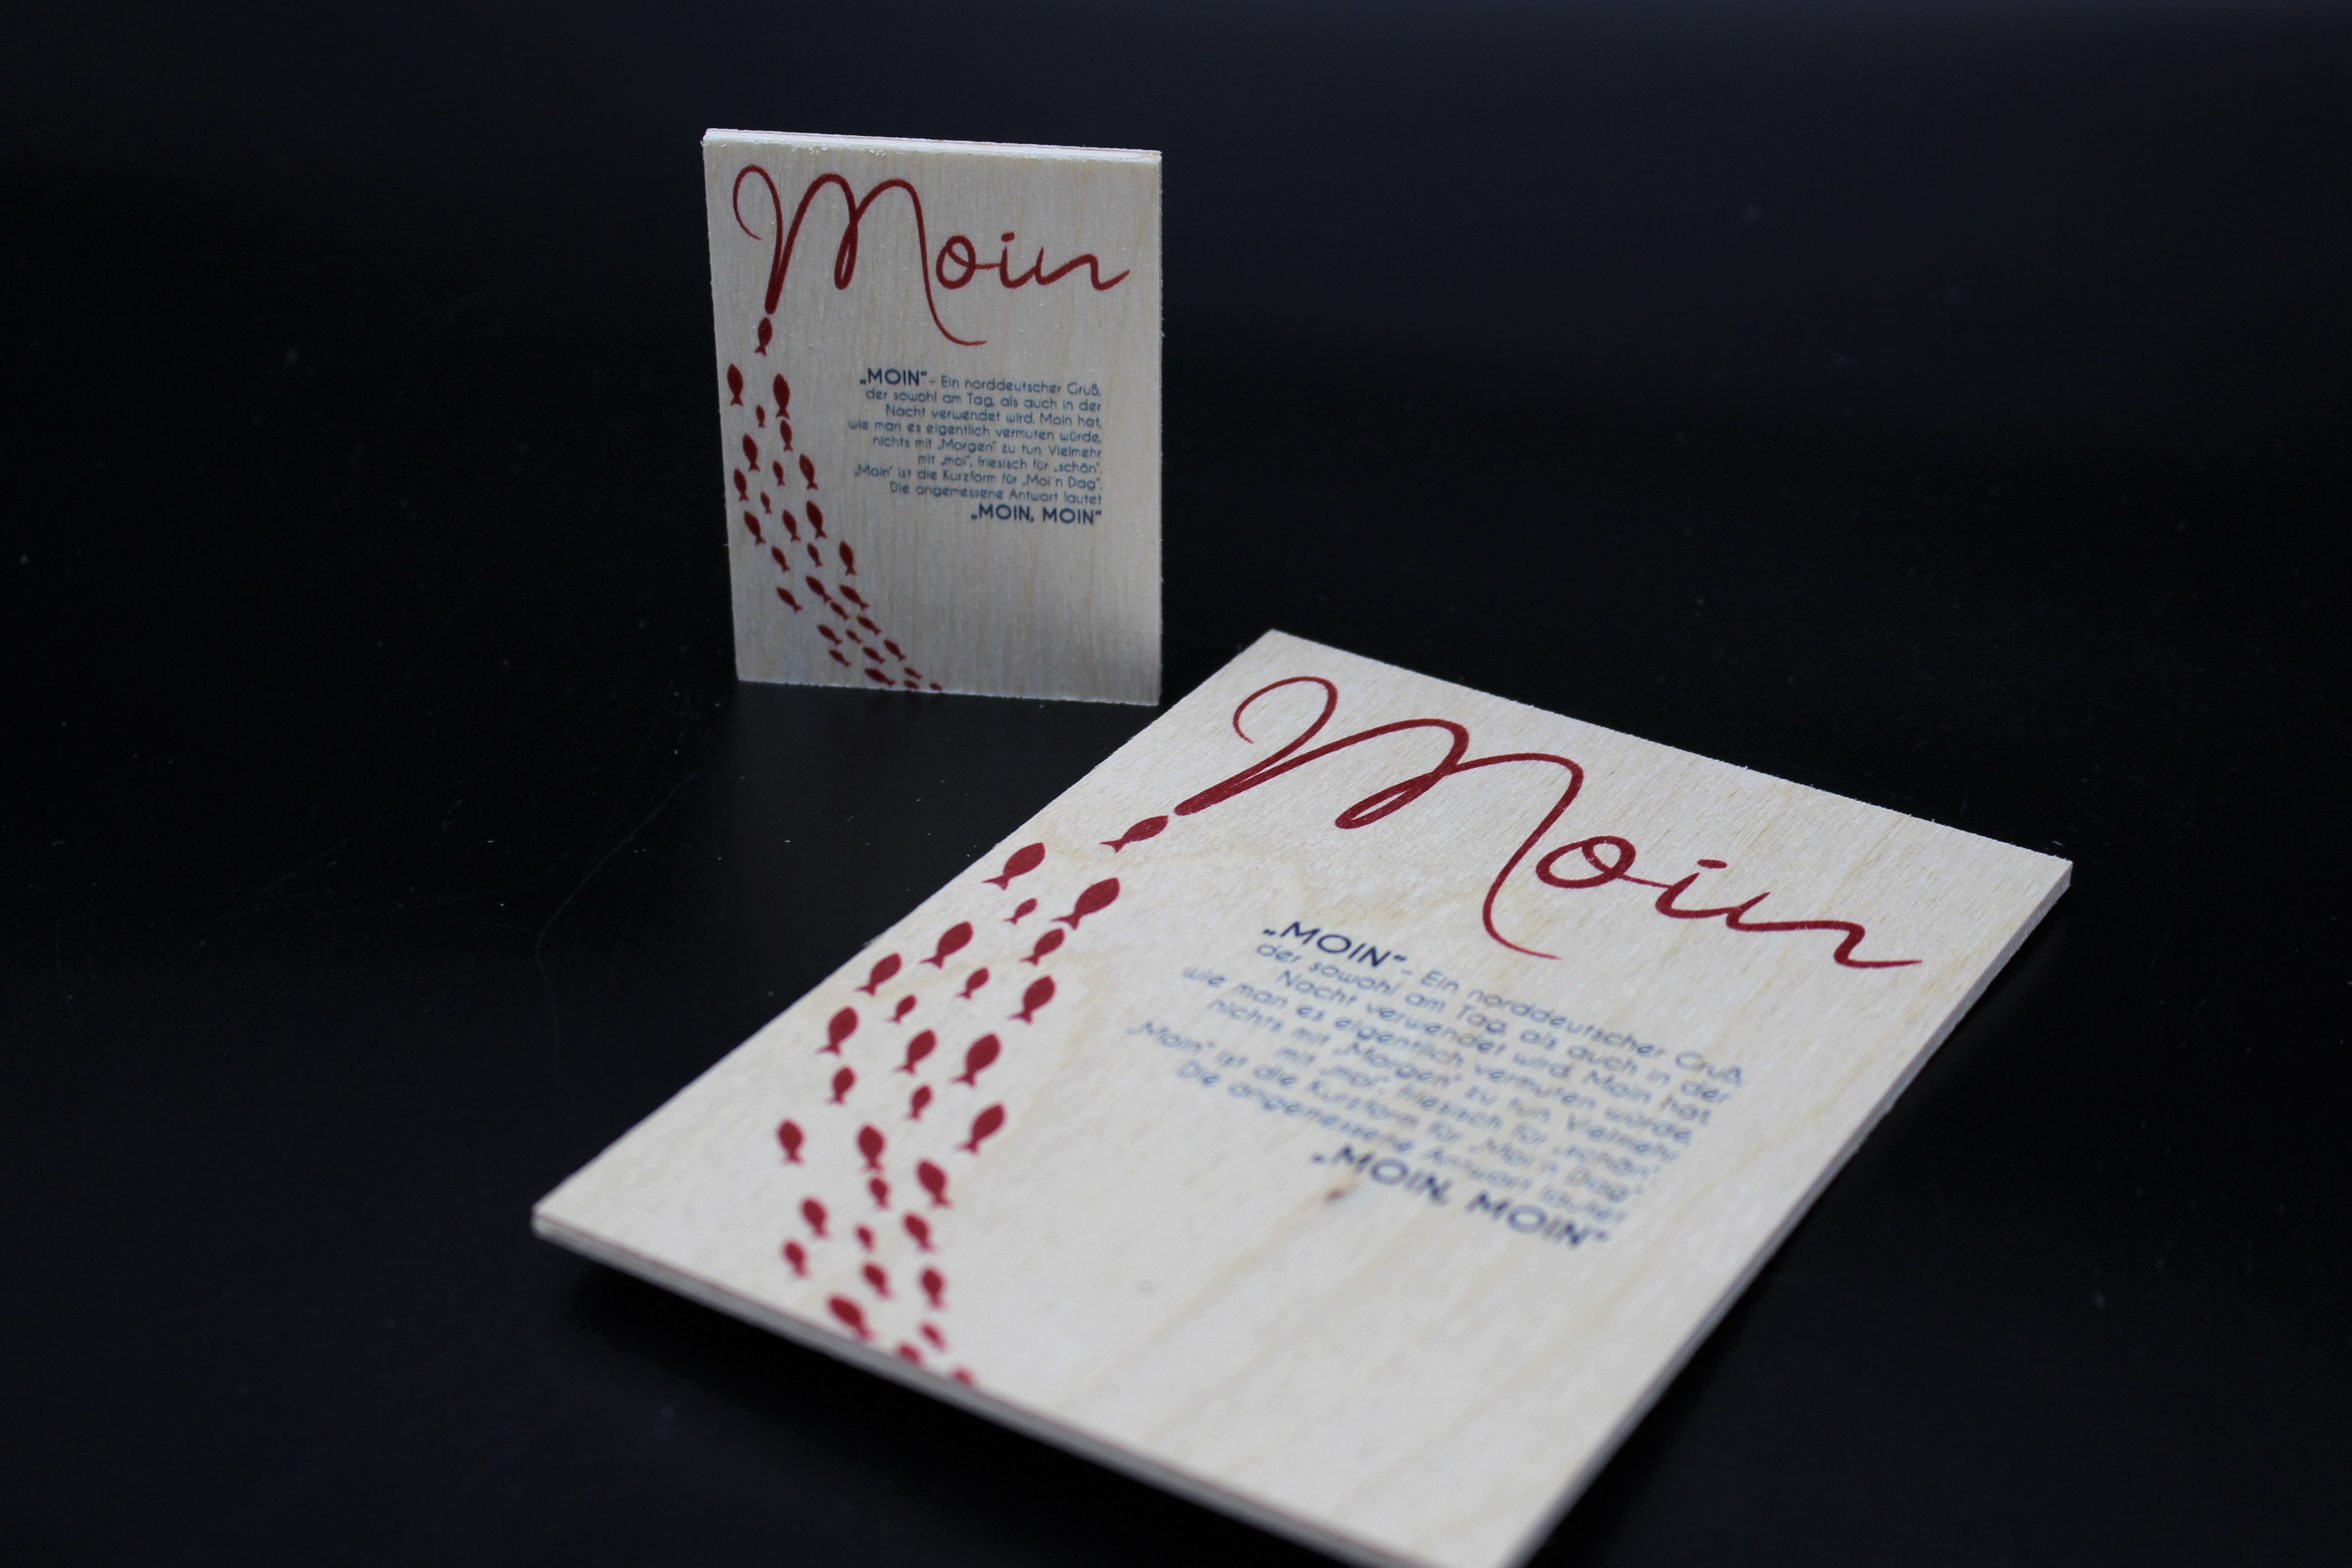 Moin
„MOIN“ - Ein norddeutscher Gruß,
der sowohl am Tag, als auch in der
Nacht verwendet wird. Moin hat,
wie man es eigentlich vermuten würde,
nichts mit „Morgen“ zu tun. Vielmehr
mit „moi“, friesisch für „schön“.
„Moin“ ist die Kurzform für „Moi´n Dag“.
Die angemessene Antwort lautet
„MOIN, MOIN“
Moin
„MOIN“ - Ein norddeutscher Gruß,
der sowohl am Tag, als auch in der
Nacht verwendet wird. Moin hat,
wie man es eigentlich vermuten würde,
nichts mit „Morgen“ zu tun. Vielmehr
mit „moi“, friesisch für „schön“.
„Moin“ ist die Kurzform für „Moi´n Dag“.
Die angemessene Antwort lautet
„MOIN, MOIN“